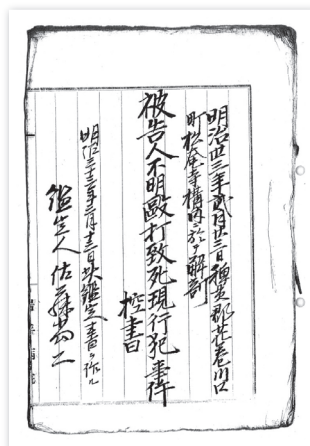 明治卅三年弐月廿三日稗貫郡花巻川口
町松庵寺構内ニ於テ解剖
被告人不明毆打致死現行犯事件
控書
明治三十三年三月十三日此鑑定書ヲ作ル
鑑定人佐藤